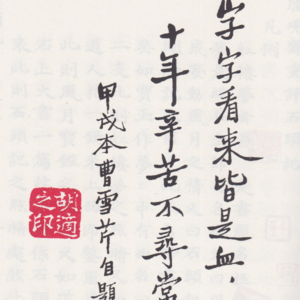 字字看來皆是血，
十年辛苦不尋常
甲戌本曹雪芹自題
胡適
之印